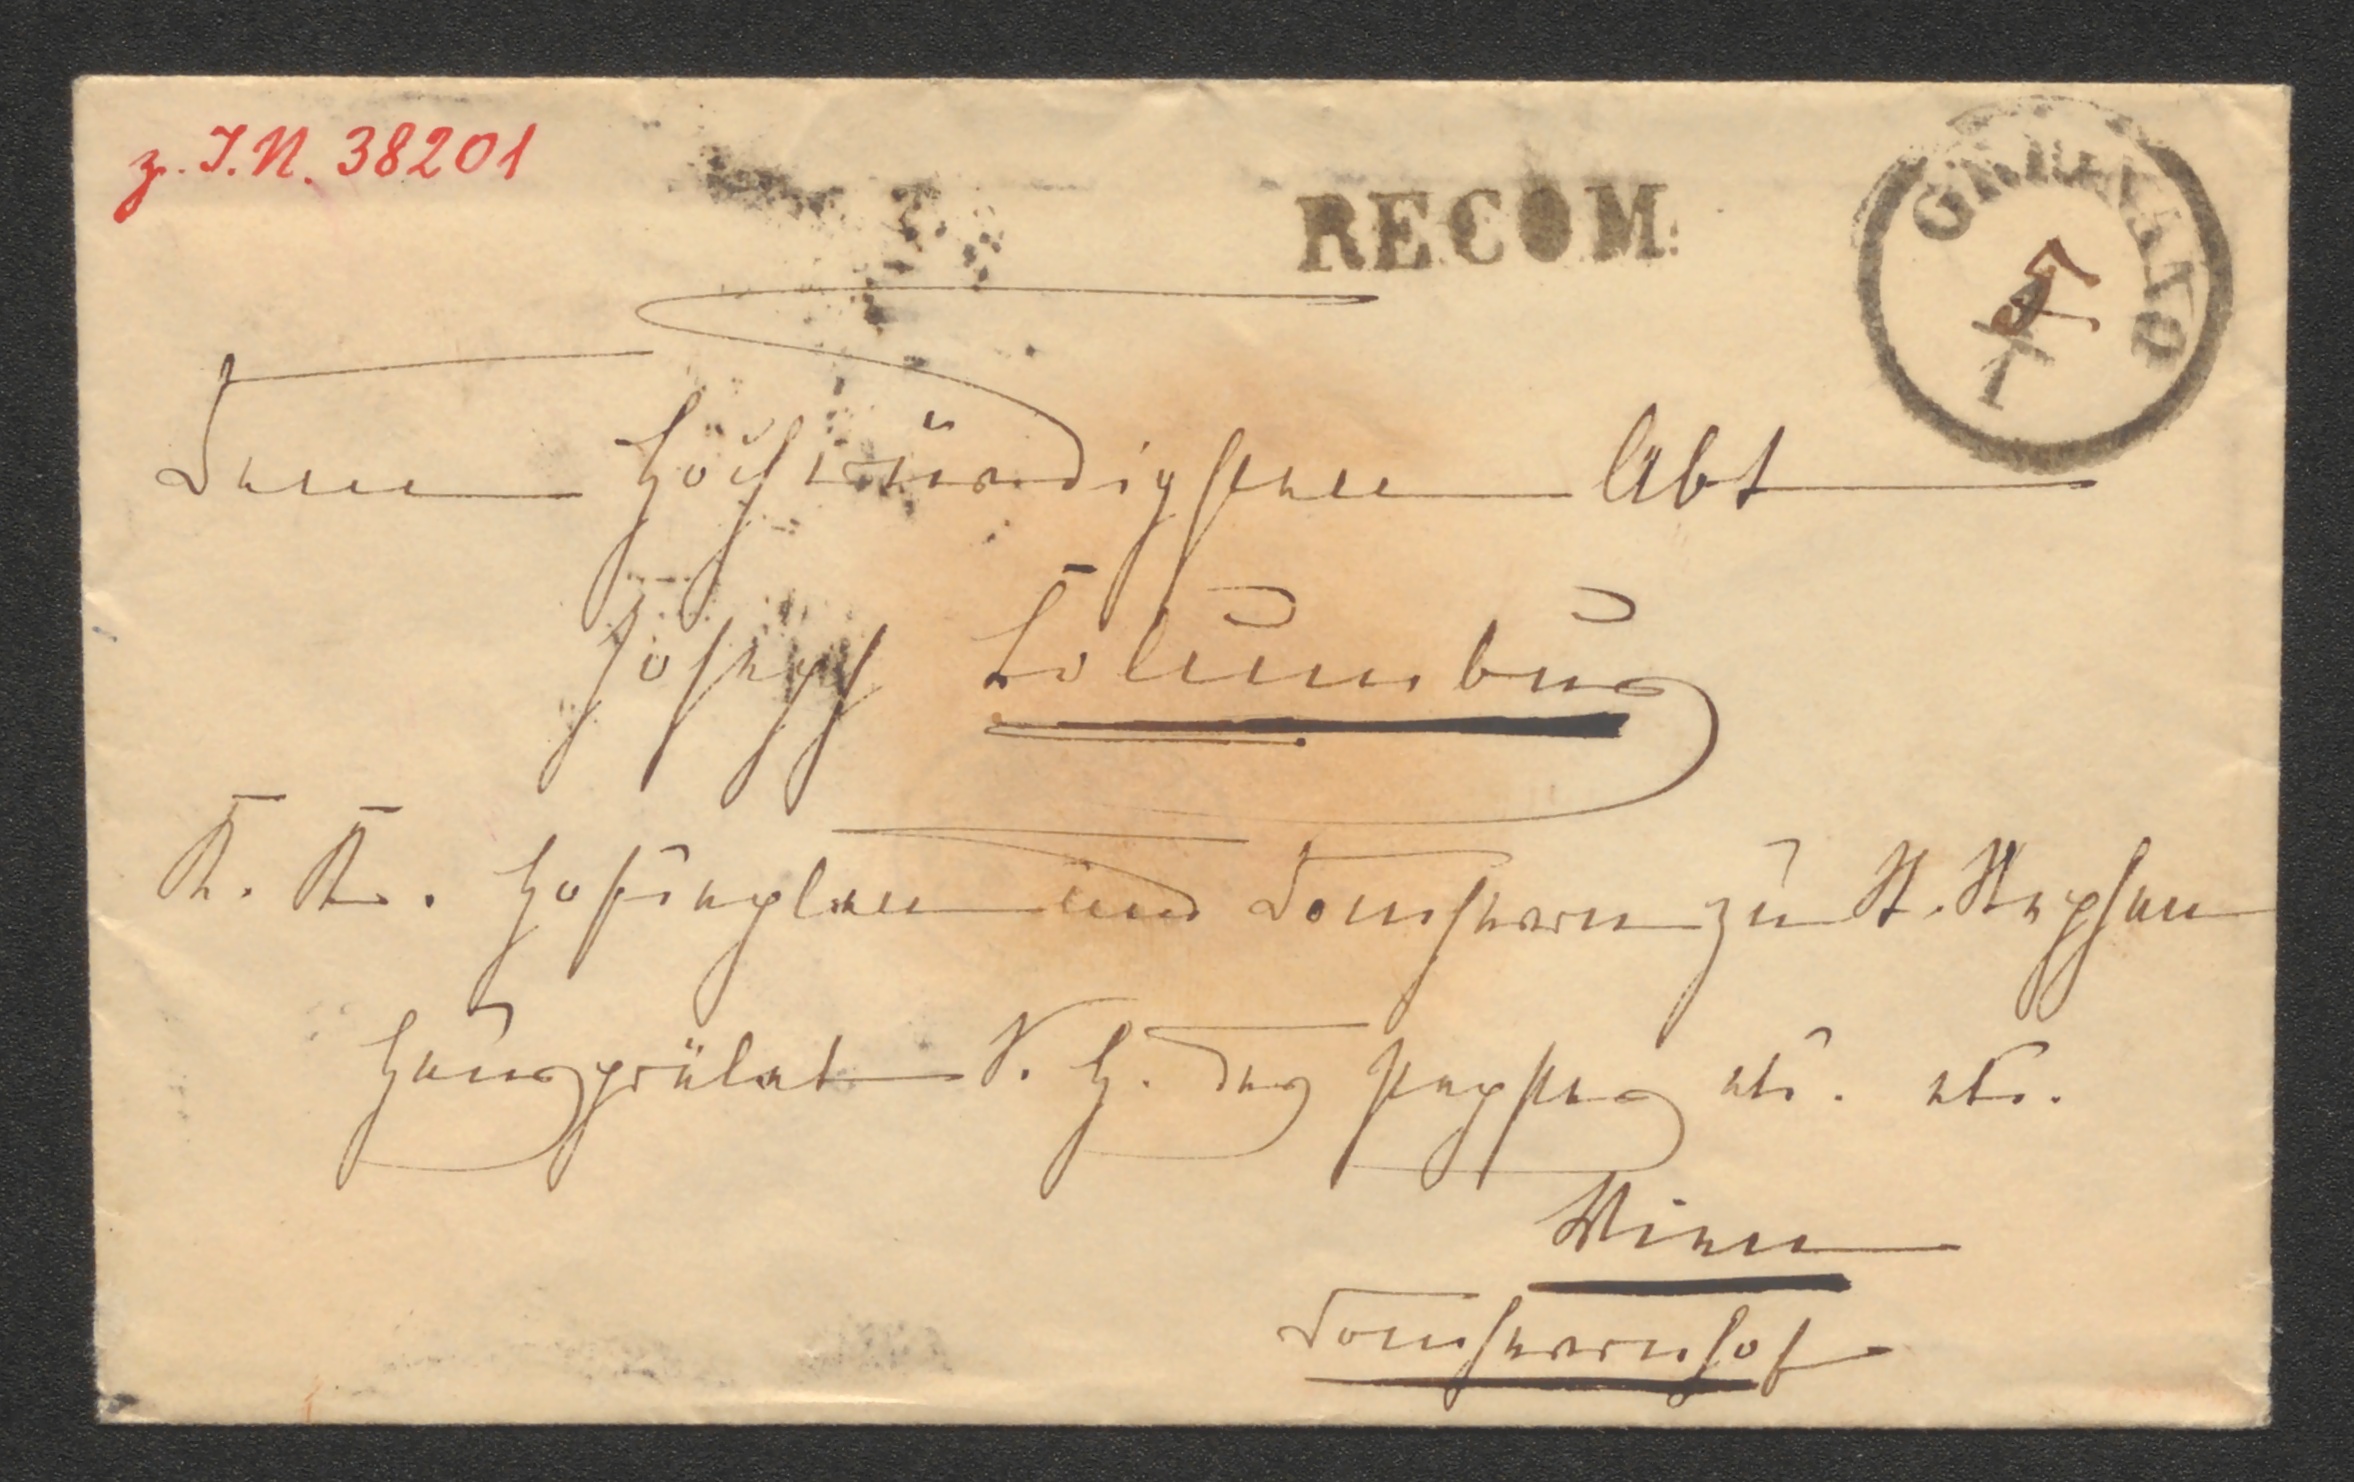 z. I.N. 38201
RECOM:
Dem Hochwürdigsten Abt
Joseph Columbus
K. K. Hofcaplan und Domherrn zu St. Stephan
Hausprälat S. H. des Papstes etc. etc.
Wien
Domherrnhof